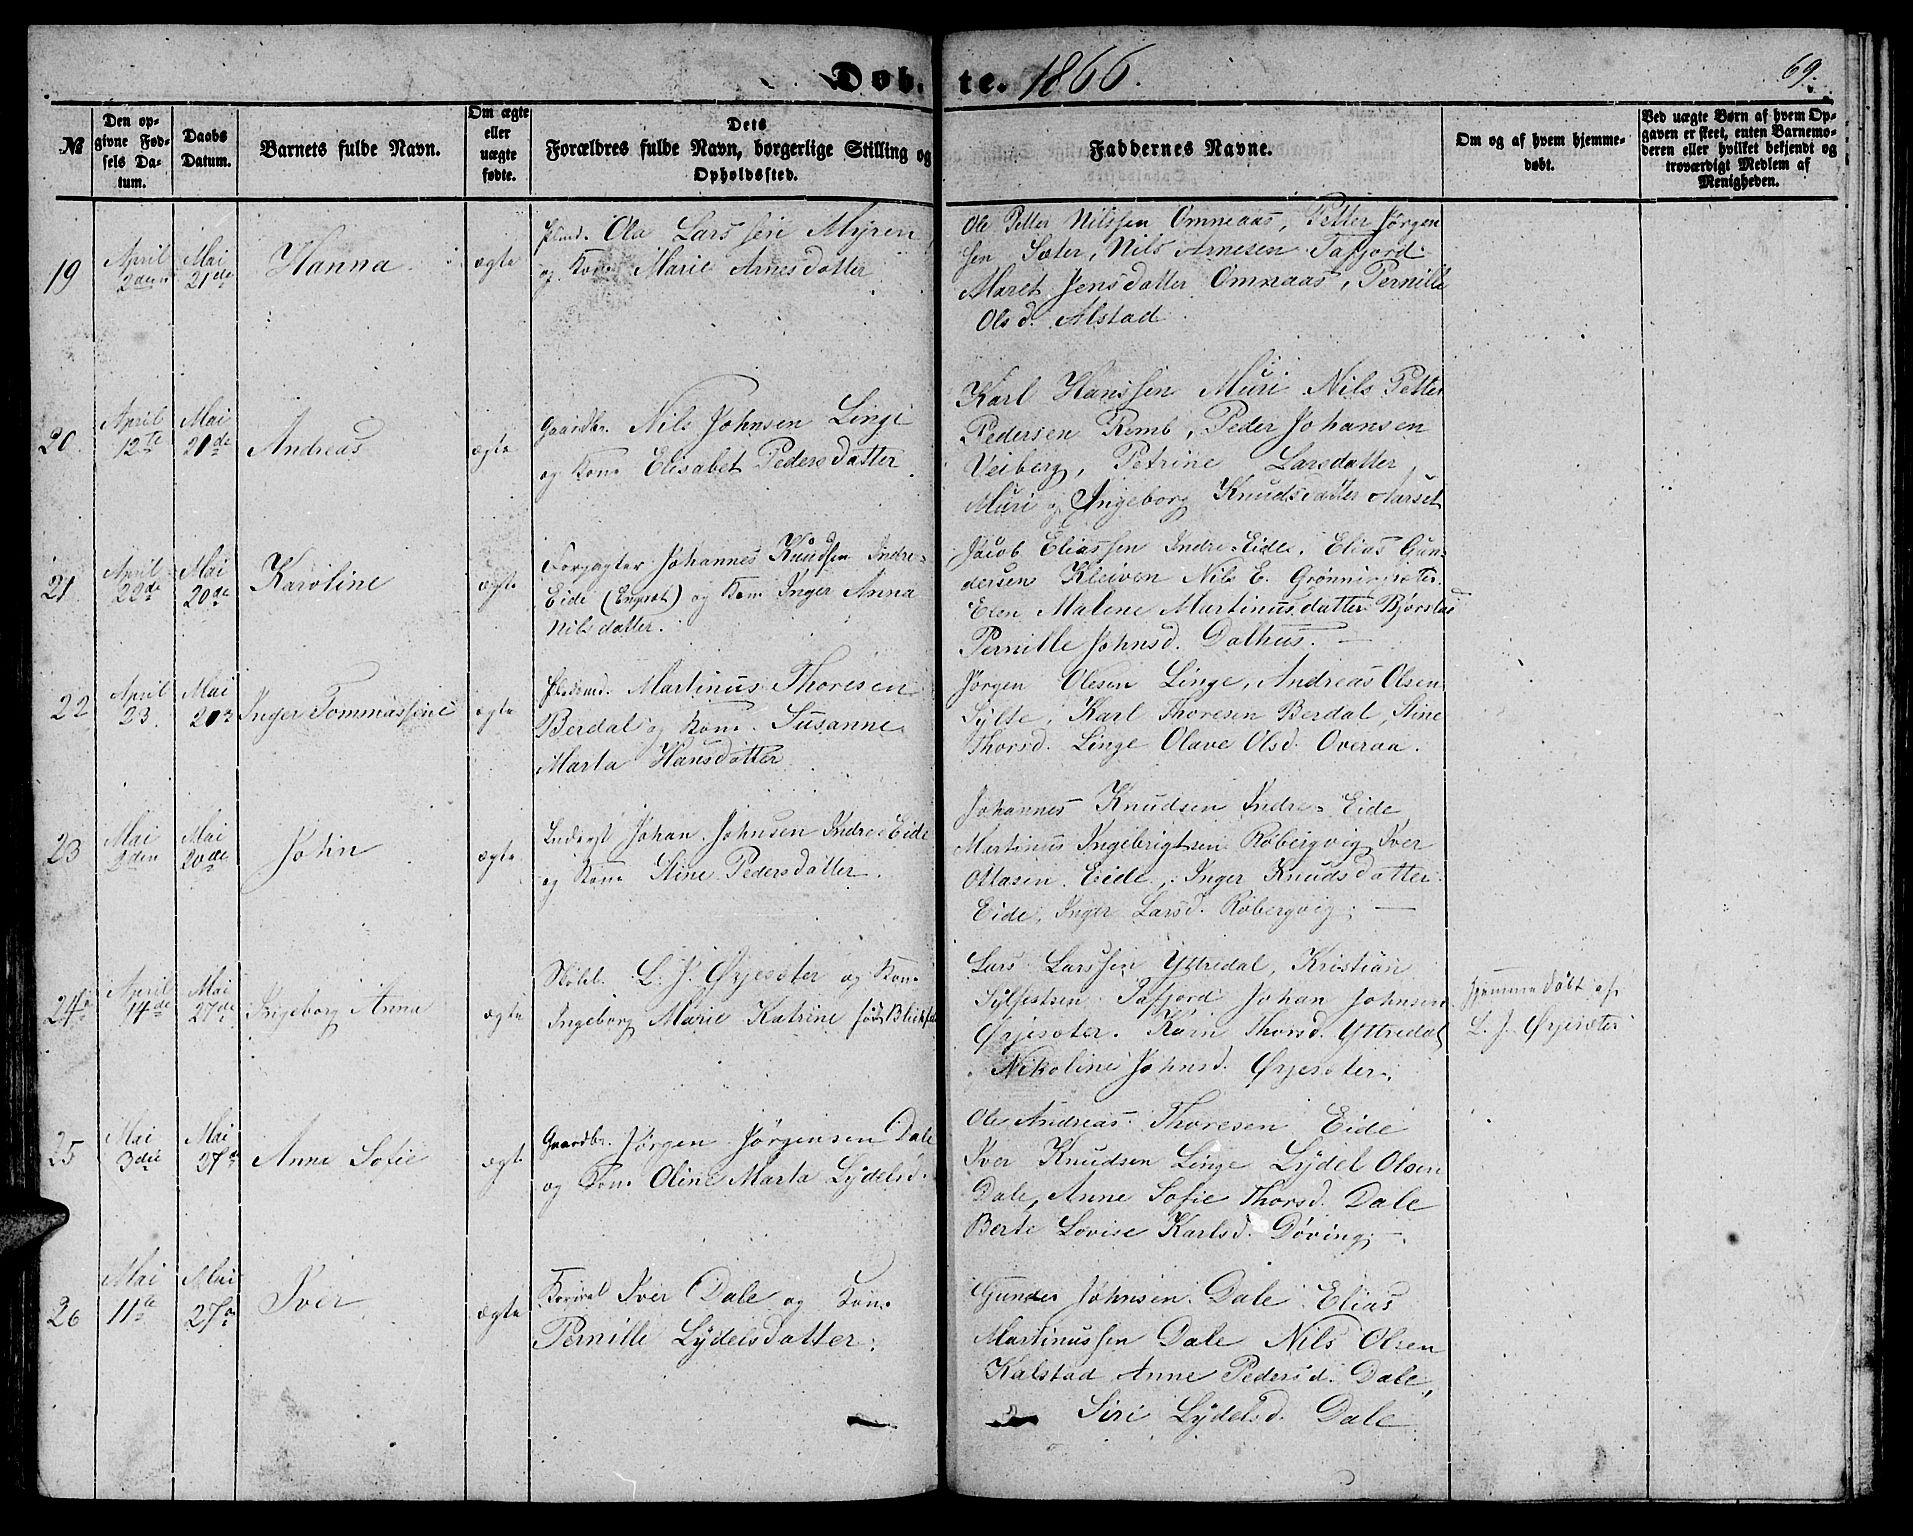 Døbte. 1866. 69.
№
Den opgivne Fødsels Datum.
Daabs Datum.
Barnets fulde Navn.
Om ægte eller uægte fødte.
Dets Forældres fulde Navn, borgerlige Stilling og Opholdssted.
Faddernes Navne.
Om og af hvem hjemmedøbt.
Ved uægte Børn af hvem Opgaven er skeet, enten Barnemoderen eller hvilket bekjendt og troværdigt Medlem af Menigheden.
19
April 2den
Mai 21de
Hanna
ægte
Ole Larssen Myren
og Kone Marie Arnesdatter
Ole Petter Nilssen Omenaas, Petter Jørgen
sen Sæter, Nils Arnesen Tafjord
Maret Jensdatter Omenaas, Pernille
Olsd. Alstad
20
April 12te
Mai 21de
Andreas
ægte
Gaardbr. Nils Johnsen Linge
og Kone Elisabet Pedersdatter
Karl Hanssen Muri Nils Petter
Pedersen Remb, Peder Johansen
Veiberg, Petrine Larsdatter
Muri og Ingeborg Knudsdatter Aarset
21
April 22de
Mai 20de
Karoline
ægte
Forpagter Johannes Knudsen Indre-
Eide (Engeset) og Kone Inger Anna
Nilsdatter.
Jacob Eliassen Indre-Eide, Elias Gun-
dersen Kleiven Nils E. Grønningsæter
Elen Malene Martinusdatter Bjørstad
Pernille Johnsd. Dalhus.
22
April 23.
Mai 20
Inger Tommassine
ægte
Martinus Thoresen
Berdal og Kone Susanne
Marta Hansdatter
Jørgen Olesen Linge, Andreas Olsen
Sylte, Karl Thoresen Berdal, Stine
Thorsd. Linge Olave Olsd. Overaa.
23
Mai 2den
Mai 20de
John
ægte
Inderst Johan Johnsen Indre-Eide
og Kone Stine Pedersdatter.
Johannes Knudsen Indre-Eide
Martinus Ingebrigtsen Røbergvig Iver
Ottasen Eide, Inger Knudsdatter
Eide, Inger Larsd. Røbergvig
24
April 14de
Mai 27de
Ingeborg Anna
ægte
L. J. Øyesæter og Kone
Ingeborg Marie Katrine født
Lars Larssen Yttredal, Kristian
Sylfestsen Tafjord Johan Johnsen
Øyesæter. Karn Thorsd. Yttredal
Nikoline Johnsd. Øyesæter.
hjemmedøbt af
L. J. Øyesæter
25
Mai 3die
Mai 27de
Anne Sofie
ægte
Gaardbr. Jørgen Jørgensen Dale
og Kone Oline Marta Lydelsd.
Ole Andreas Thoresen Eide
Iver Knudsen Linge Lydel Olsen
Dale, Anne Sofie Thorsd. Dale
Berte Lovise Karlsd. Døving
26
Mai 11te
Mai 27de
Iver
ægte
Iver Dale og Kone
Pernille Lydelsdatter.
Gunder Johnsen Dale Elias
Martinussen Dale Nils Olsen
Kalstad Anne Pedersd. Dale,
Siri Lydelsd. Dale